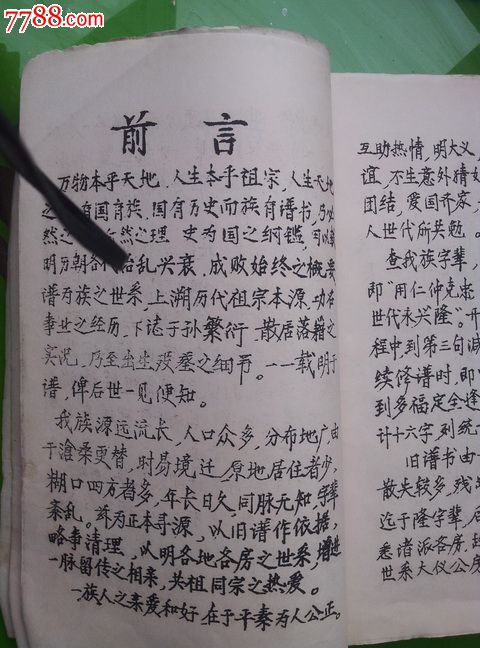 7788.com
中国收藏热线
前言
万物本乎天地，人生本乎祖宗，人生天地
之 有国有族，国有历史而族有谱书，乃
然之 然心理 史为国之纲鑑，
明历朝各 治乱兴衰，成败始终之概要
谱为族之世系，上溯历代祖宗本源，功名
事业之经历，下誌子孙繁衍 散居落籍之
实况，乃至出生殁塟之细节。一一载明于
谱，俾后世一见便知。
我族源远流长，人口众多，分布地广，由
于沧桑更替，时易境迁，原地居住者少，
糊口四方者多，年长日久，同脉无知，字辈
紊乱。兹为正本寻源，以旧谱作依据，
略事清理，以明各地各房之世系，增进
一脉留传之相亲，共祖同宗之热爱。
一族人之亲爱和好，在于平素为人公正。
互助热情，明大义
谊，不生意外猜
团结，爱国齐家
人世代所共勉。
查我族字辈，
即"用仁仲克忠
世代永兴隆"。
程中，到第三句减
续修谱时，即
到多福定全逢
计十六字，列统
旧谱书由
散失较多，残
迄于隆字辈，
悉诸派各房，
世系大仪公房